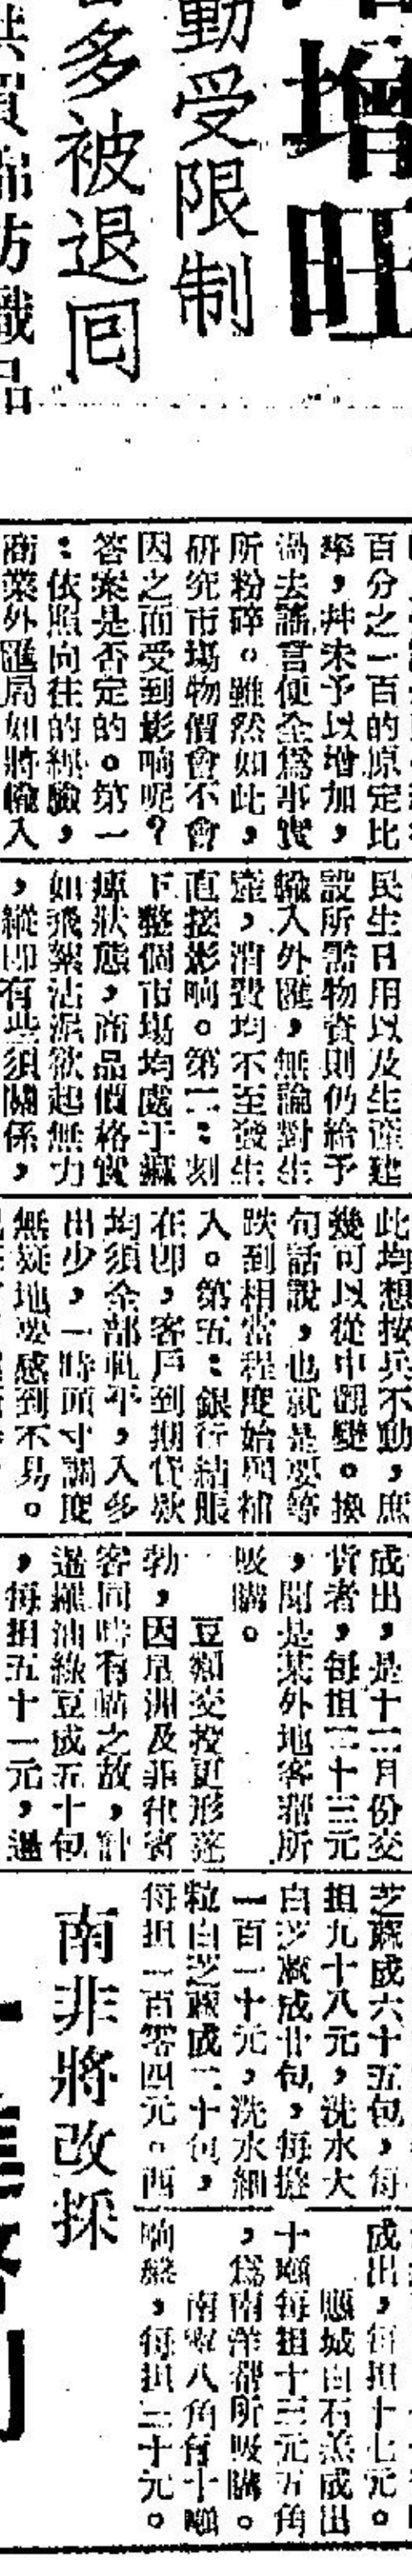 增旺
動受限制
多被退囘
紡織品
百分之一百的原定比
率，幷未予以增加，
過去謠言便全爲事實
所粉碎。雖然如此，
研究市塲物價會不會
因之而受到影响呢？
答案是否定的。第一
：依照向往的經驗，
商業外匯局如將輸入
民生日用以及生產建
設所需物資則仍給予
輸入外匯，無論對生
產，消費均不至發生
直接影响。第二：刻
下整個市塲均處于癱
瘓狀態，商品價格實
如飛絮沾泥欲起無力
，縱即有些須關係，
此均想按兵不動，庶
幾可以從中觀變。換
句話說，也就是要等
跌到相當程度始與補
入。第五：銀行結賬
在即，客戶到期貸欵
均須全部軋平，入多
出少，一時頭寸調度
無疑地要感到不易。
成出，是十二月份交
貨者，每担三十三元
，聞是某外地客帮所
吸購。
豆類交投更形蓬
勃，因星洲及菲律賓
客同時有購之故，計
暹羅油綠豆成五十包
，每担五十一元，暹
芝蔴成六十五包，每
担九十八元，洗水大
白芝蔴成廿包，每担
一百一十元，洗水細
粒白芝蔴成二十包，
每担一百零四元。西
成出，每担十七元。
應城白石羔成出
十噸每担十三元五角
，爲南洋帮所吸購。
南寧八角有十噸
响盤，每担三十元。
南非將改採